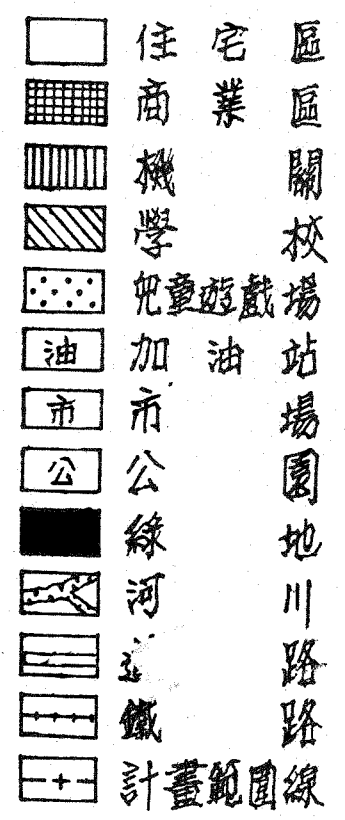 住宅區
商業區
機關
學校
兒童遊戲場
油 加油站
市 市場
公 公園
綠地
河川
路
鐵路
計畫範圍線